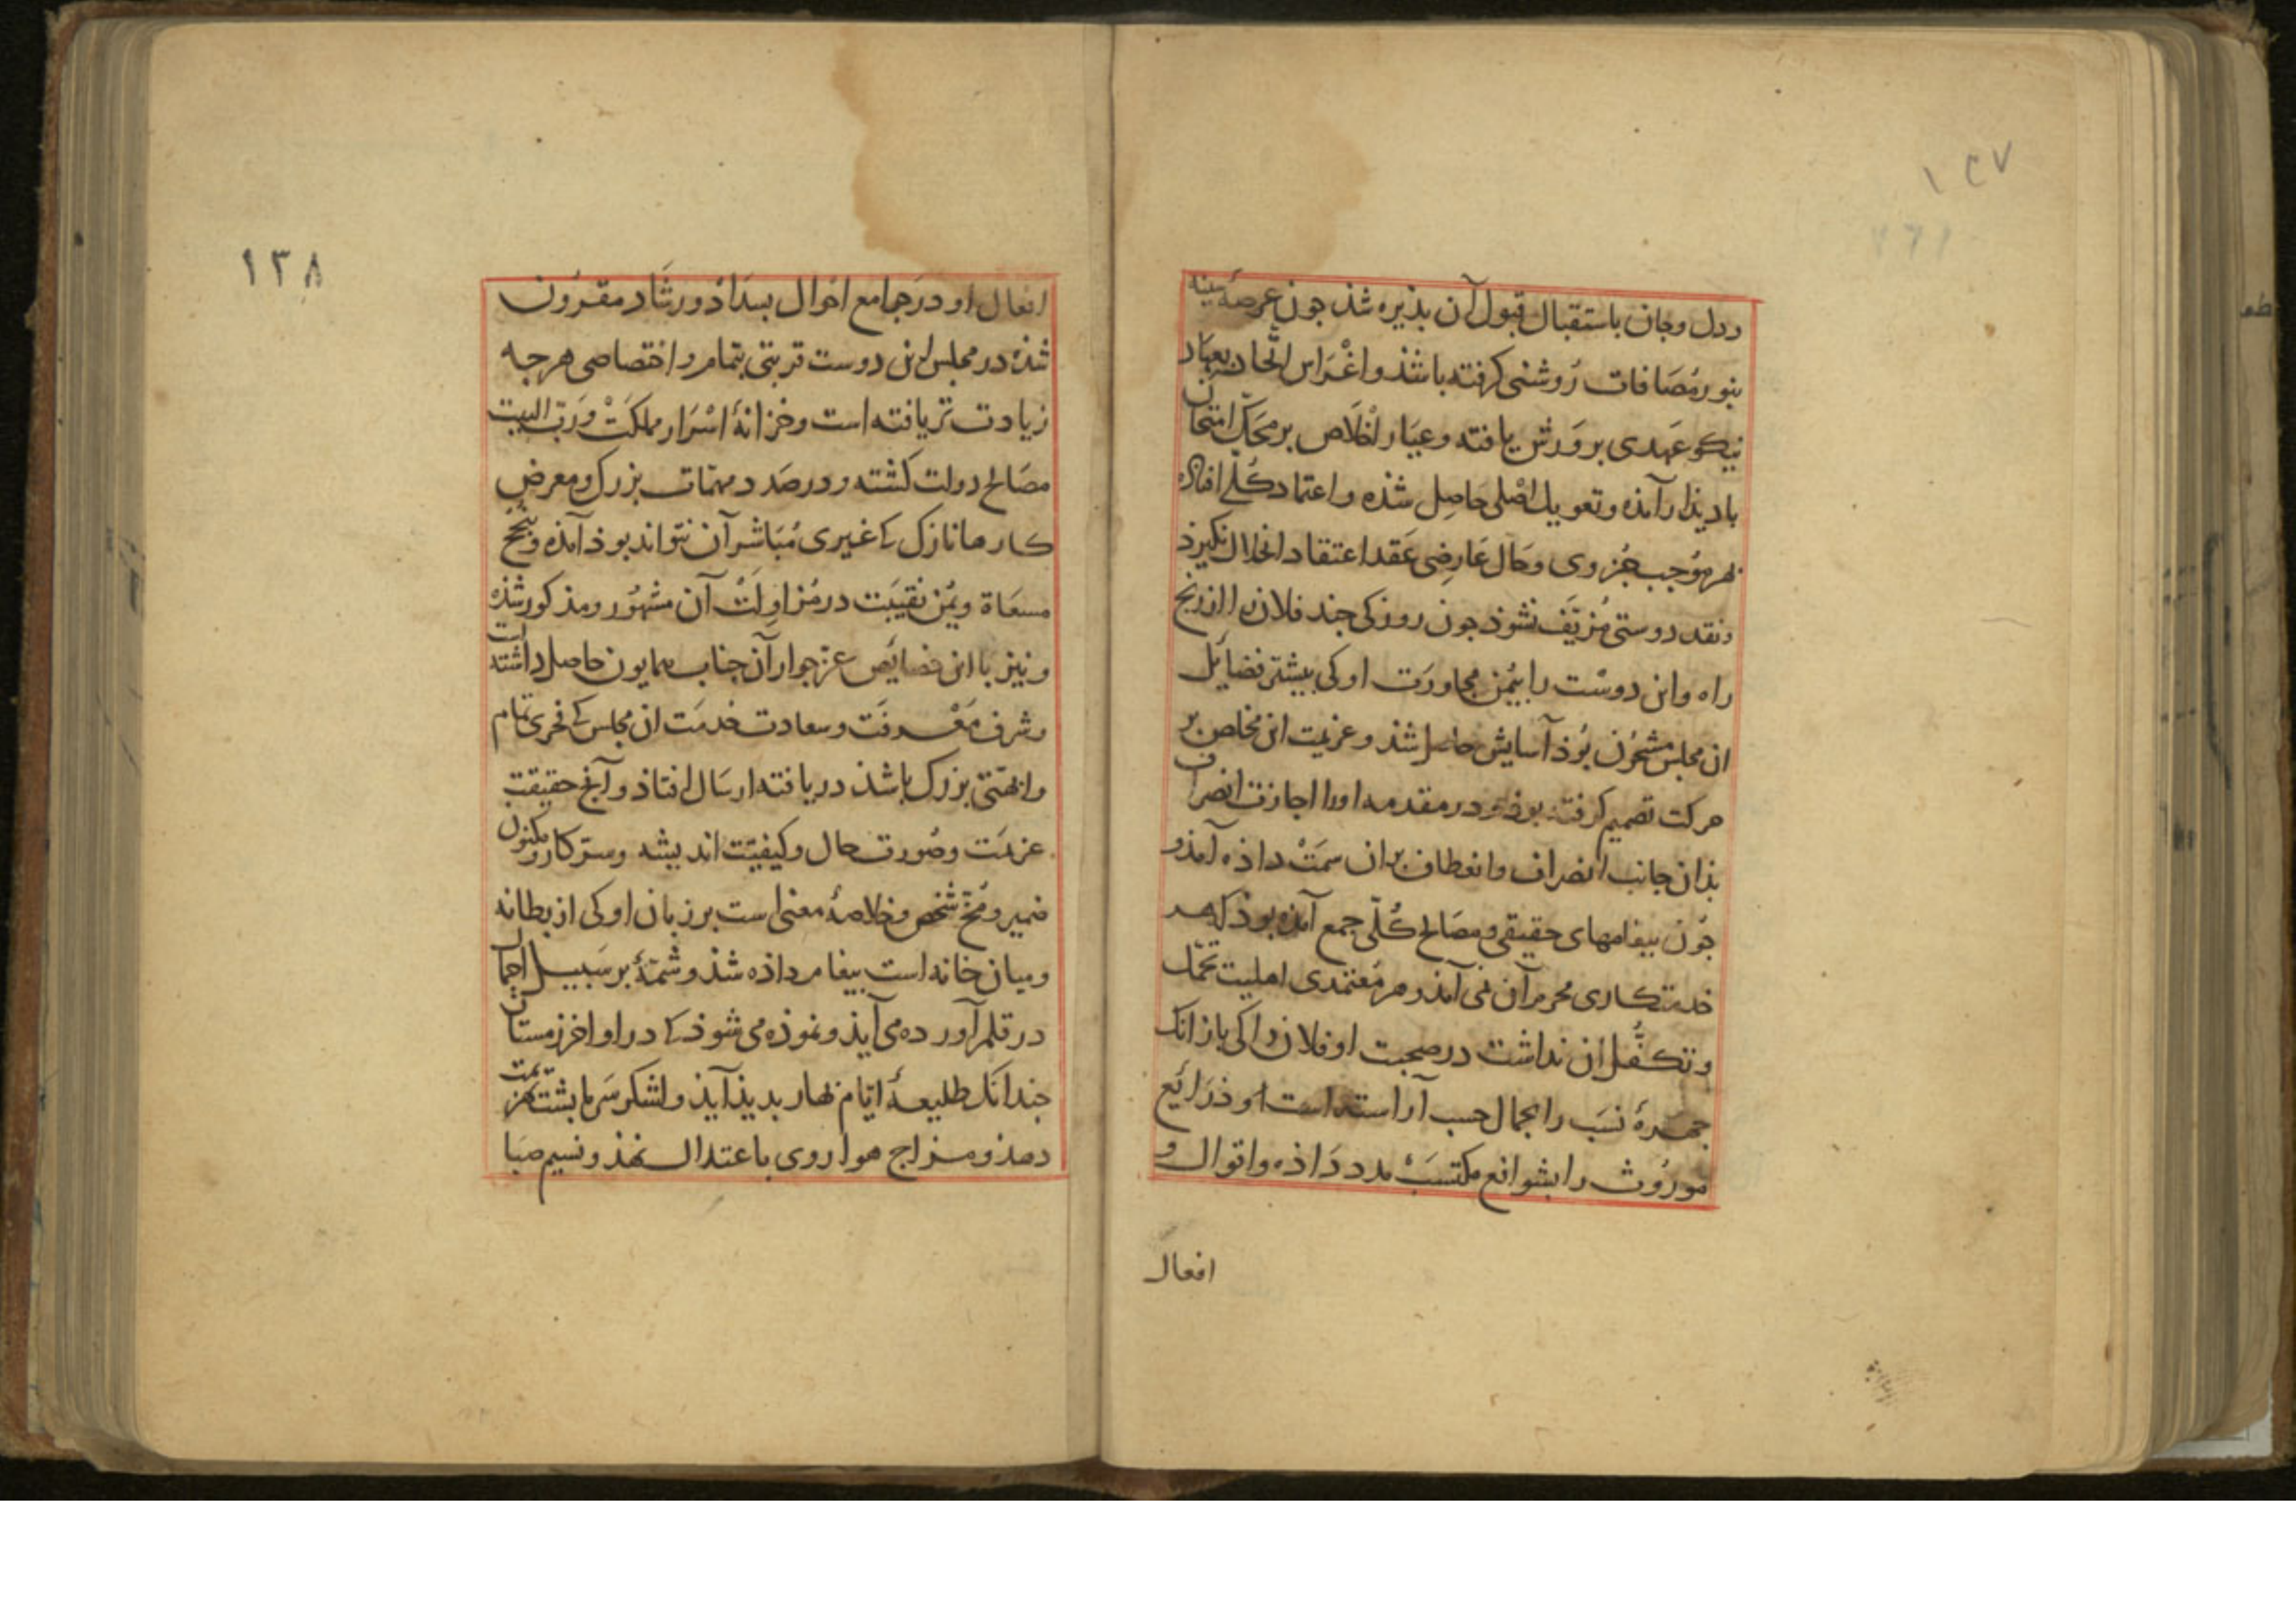 ۱۳۷
ودل وجان باستقبال قبول آن بذیره شذ جون عرصهٔ سینه
بنور مُصَافات رُوشنی کرفته باشذ واغْرَاس اتّحاد بعهَاد
نیکو عَهدی بروَرش یافته وعیَار اخلَاص بر محَکّ امتحان
بادیذار آمذه وتعویل اصْلی حَاصِل شذه واعتماد کُلّی افتاذه
بهر مُوجب جُزوی وحَال عَارِضی عَقد اعتقاد انحلال نکیرذ
ونقد دوستی مُزیَّف نشوذ جون روزکی جند فلان را از رنج
راه واین دوسْت را بیُمن مجاورَت او کی بیشتر فضایَل
ان مجلس مشحُون بُوذ آسایش حاصل شذ وعزیمت این مخلص بر
حرکت تصمیم کرفته بوذ ودر مقدمه اورا اجازت انصراف
بذان جانب انصراف وانعطاف بران سمَتْ داذه آمذ و
جُون بیغامهای حقیقی ومصَالح کُلّی جمع آمذه بوذ که هر
خدمتکاری محرم آن نمی آمذ وهر مُعتمدی اهلیت تحمّل
وتکفُّل ان نداشت در صحبت او فلان را کی بازانک
جهرهٔ نسَب را بجمال حسب آراسته است او ذرَایَع
مورُوث را بشوافع مکتسَبْ مدد دَاذه واقوال و
افعال
۱۳۸
افعال او در جَوامع احوال بسدَاذ ورشَاد مقرُون
شذه در مجلس این دوست تربتی بتمام واختصاصی هرجه
زیادت تر یافته است وخزانهٔ اسْرَار مملکَتْ ورَبّ البیت
مصَالح دولت کشته ودر صدَد مهمّات بزرک ومعرض
کارها نازک که غیری مُبَاشر آن نتواند بوذ آمذه وبنُجْح
مسعَاة ویُمن نقیبَت در مُزاوِلَتْ آن مشهُور ومذکور شذه
ونیز با این خصایَص عز جوار آن جناب همایون حاصل داشته است
وشرف مَعْرفَت وسعادت خدمَت ان مجلس که فخری تمام
وانهتّی بزرک باشذ دریافته ارسَال افتاذ وآنج حقیقتِ
عزیمَت وصُورت حال وکیفیّت اندیشه وسرّ کار ومکنون
ضمیر ومُخّ شخص وخلاصهٔ معنی است بر زبان او کی از بطانه
ومیان خانه است بیغام داذه شذ وشمّهٔ بر سَبیل اجمال
در قلم آورده می آیذ ونموذه می شوذ که در اواخر زمستان
جندانک طلیعهٔ ایّام بهار بدیذ آیذ ولشکر سَرما بشت بهزیمت
دهذ ومزاج هوا روی باعتدال نهذ ونسیم صَبا